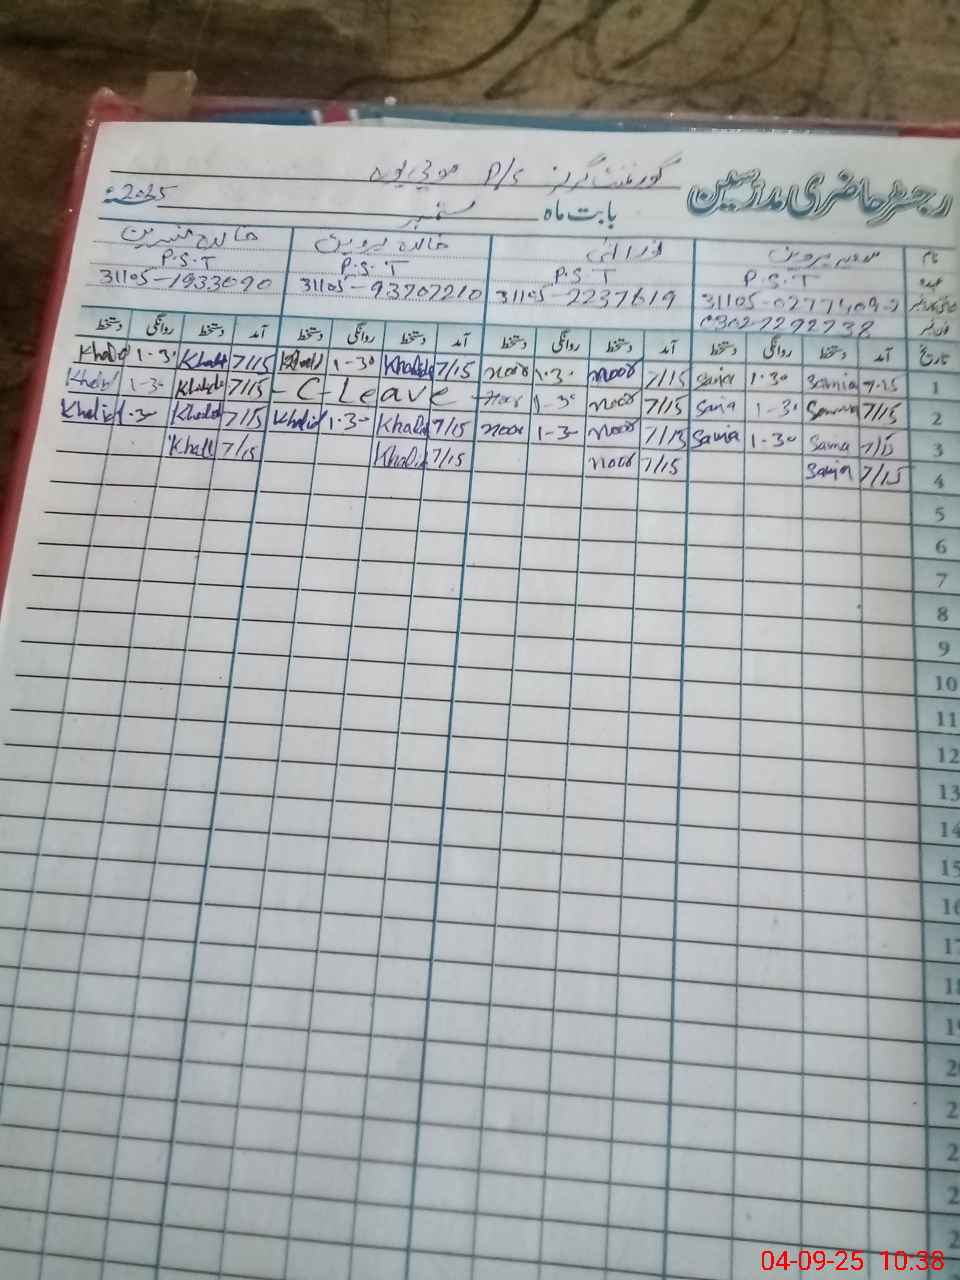 رجسٹر حاضری مدرسین
گورنمنٹ گرلز P/S
بابت ماہ ستمبر 2025ء
نام خالدہ پروین خالدہ نسرین
عہدہ P.S.T P.S.T P.S.T P.S.T
31105-2237619 31105-93707210 31105-1933090
0302-7292738
تاریخ آمد دستخط روانگی دستخط آمد دستخط روانگی دستخط آمد دستخط روانگی دستخط آمد دستخط روانگی دستخط
1 7-15 Samia 1-30 Samia 7/15 noor 1-30 noor 7/15 Khalida 1-30 Khalid 7/15 Khalid 1-30 Khalid
2 7/15 Samia 1-30 Samia 7/15 noor 1-30 noor - C-Leave - 7/15 Khalida 1-30 Khalid
3 7/15 Samia 1-30 Samia 7/15 noor 1-30 noor 7/15 Khalid 1-30 Khalid 7/15 Khalid 1-30 Khalid
4 7/15 Samia 7/15 noor 7/15 Khalid 7/15 Khalid
5
6
7
8
9
10
11
12
13
14
15
16
17
18
19
04-09-25 10:38